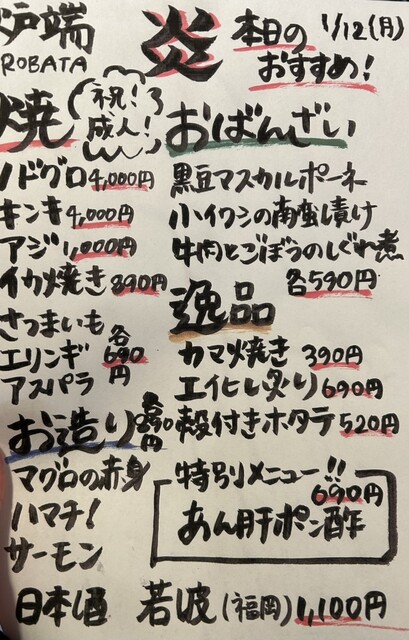 炉端
ROBATA
炎
本日の
おすすめ!
1/12(月)
祝!
成人!
焼
ノドグロ4,000円
キンキ4,000円
アジ1,000円
イカ焼き890円
さつまいも
エリンギ
アスパラ
各
690
円
お造り
マグロの赤身
ハマチ!
サーモン
おばんざい
黒豆マスカルポーネ
小イワシの南蛮漬け
牛肉とごぼうのしぐれ煮
各590円
逸品
カマ焼き 390円
エイヒレ炙り 690円
殻付きホタテ 520円
特別メニュー!!
690円
あん肝ポン酢
日本酒 若波(福岡)1,100円